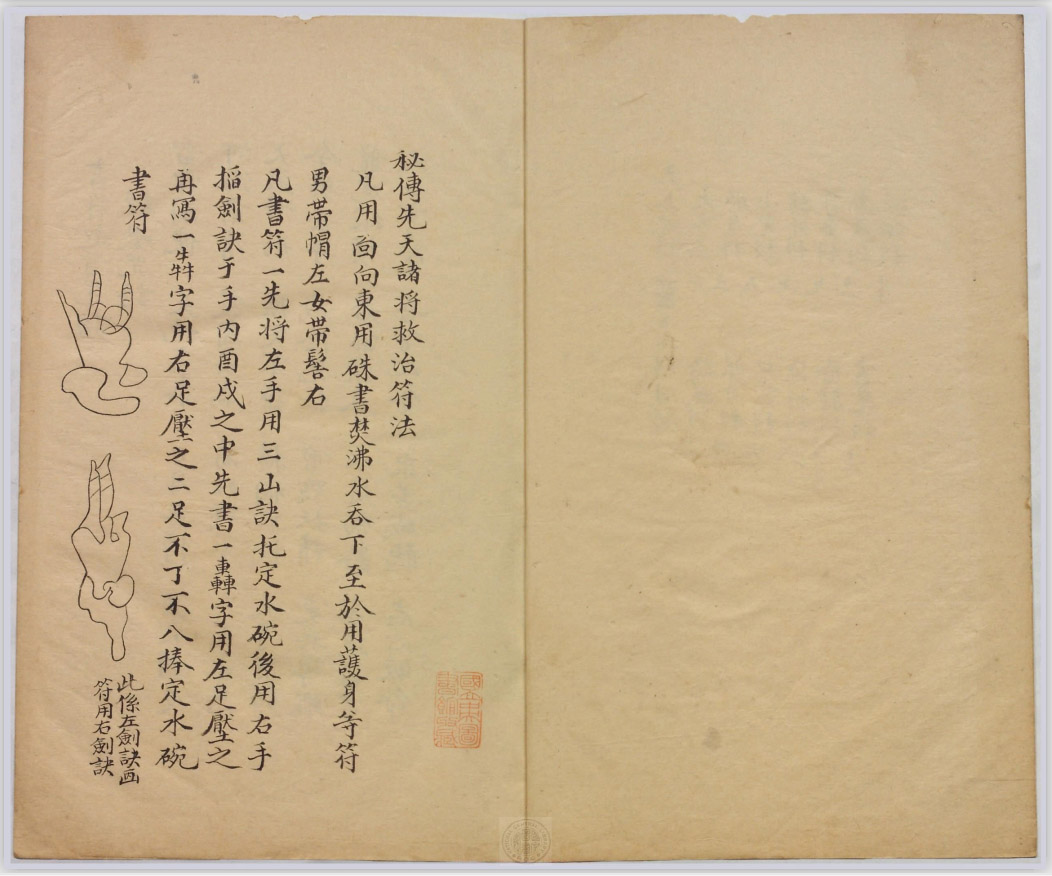 秘傳先天諸将救治符法
凡用面向東用硃書焚沸水吞下至於用護身等符
男帶帽左女帶髻右
凡書符一先将左手用三山訣托定水碗後用右手
搯劍訣于手内酉戌之中先書一轟字用左足壓之
再寫一犇字用右足壓之二足不丁不八捧定水碗
書符
此係左劍訣画
符用右劍訣
國立中央圖
書館收藏